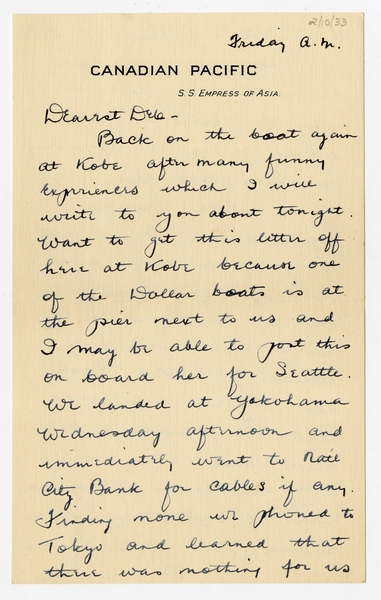 2/10/33
Friday A.M.
CANADIAN PACIFIC
S.S. EMPRESS OF ASIA.
Dearest Deb -
Back on the boat again
at Kobe after many funny
experiences which I will
write to you about tonight.
Want to get this letter off
here at Kobe because one
of the Dollar boats is at
the pier next to us and
I may be able to post this
on board her for Seattle.
We landed at Yokohama
Wednesday afternoon and
immediately went to Natl
City Bank for cables if any.
Finding none we phoned to
Tokyo and learned that
there was nothing for us